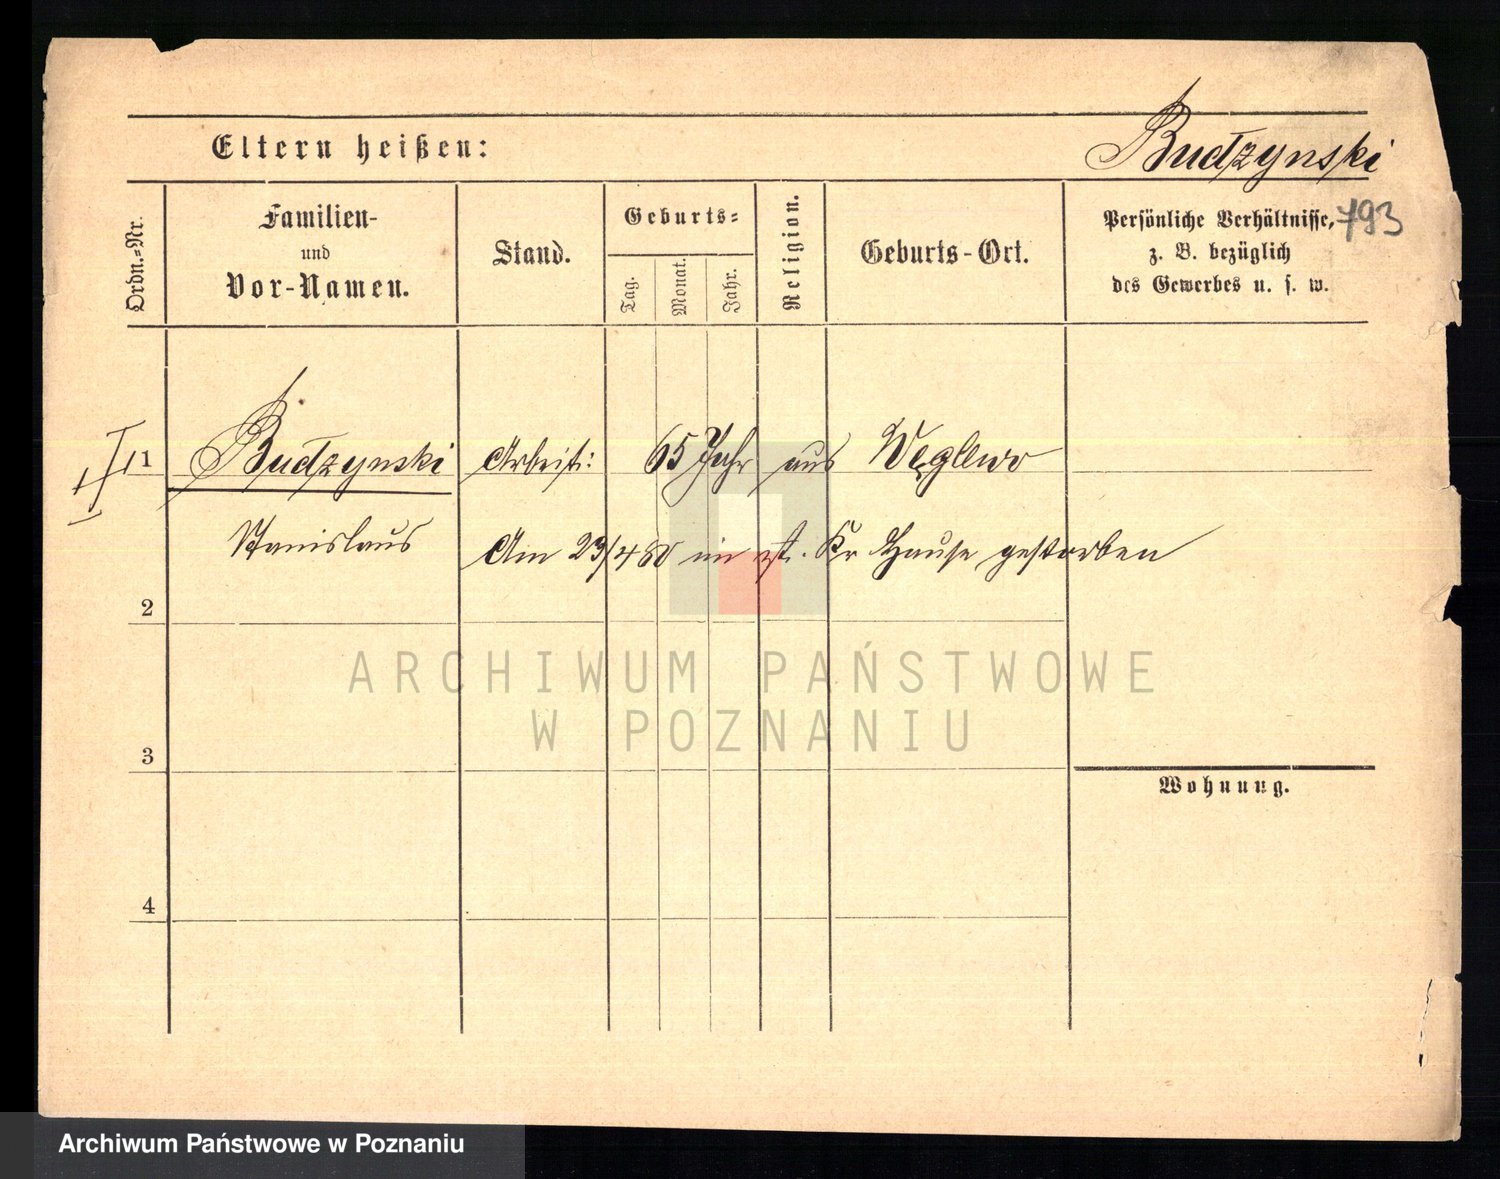 Eltern heißen:
Budzynski
793
Ordn.=Nr.
Familien-
und
Vor-Namen.
Stand.
Geburts=
Tag.
Monat.
Jahr.
Religion.
Geburts-Ort.
Persönliche Verhältnisse,
z. B. bezüglich
des Gewerbes u. s. w.
1 Budzynski Arbeit: 65 Jahr aus Węglewo
Stanislaus Am 23/4 80 im st. Kr Hause gestorben
2
ARCHIWUM PAŃSTWOWE
W POZNANIU
3
Wohnung.
4
Archiwum Państwowe w Poznaniu